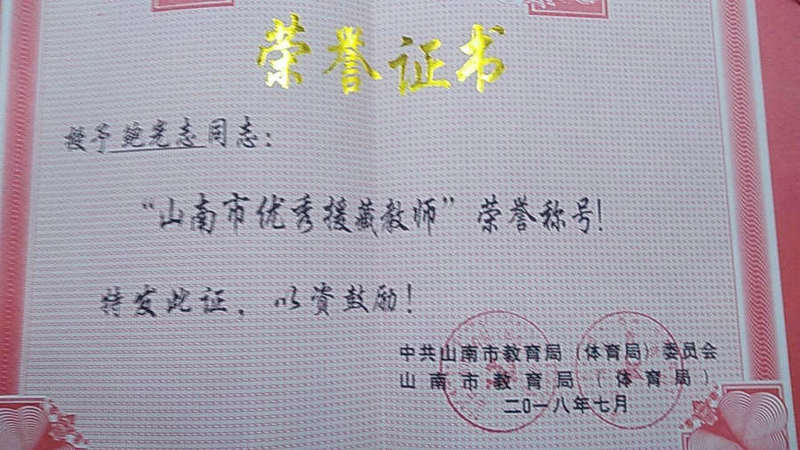 荣誉证书
授予 鲍克志 同志：
“山南市优秀援藏教师”荣誉称号！
特发此证，以资鼓励！
中共山南市教育局（体育局）委员会
山南市教育局（体育局）
二0一八年七月